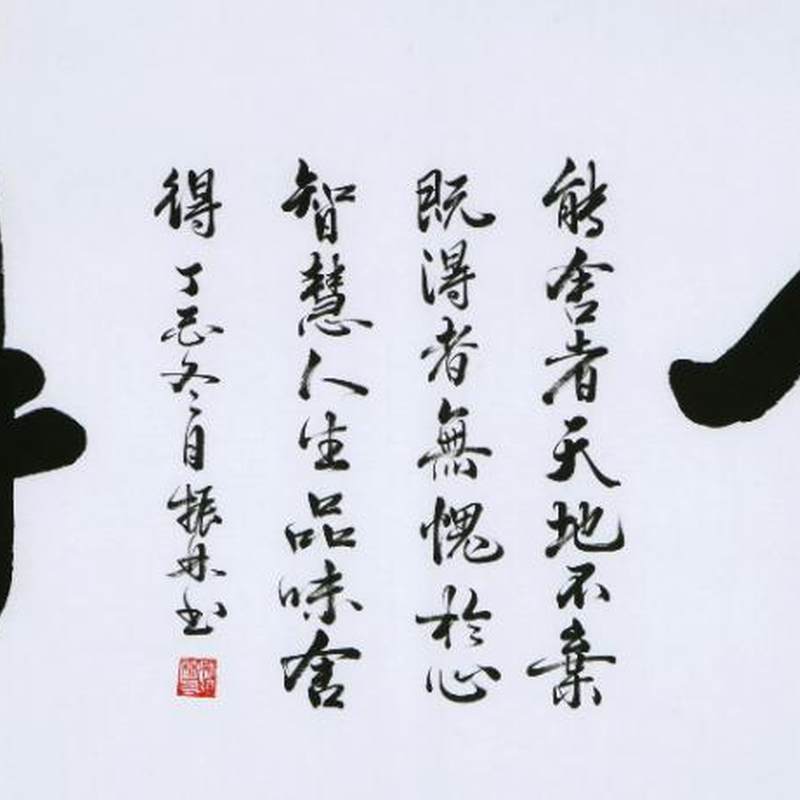 能舍者天地不棄
既得者無愧於心
智慧人生品味舍
得 丁酉冬月振